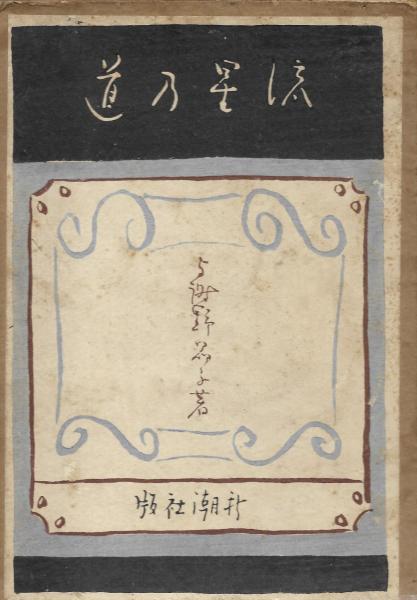 流星乃道
与謝野晶子著
新潮社版